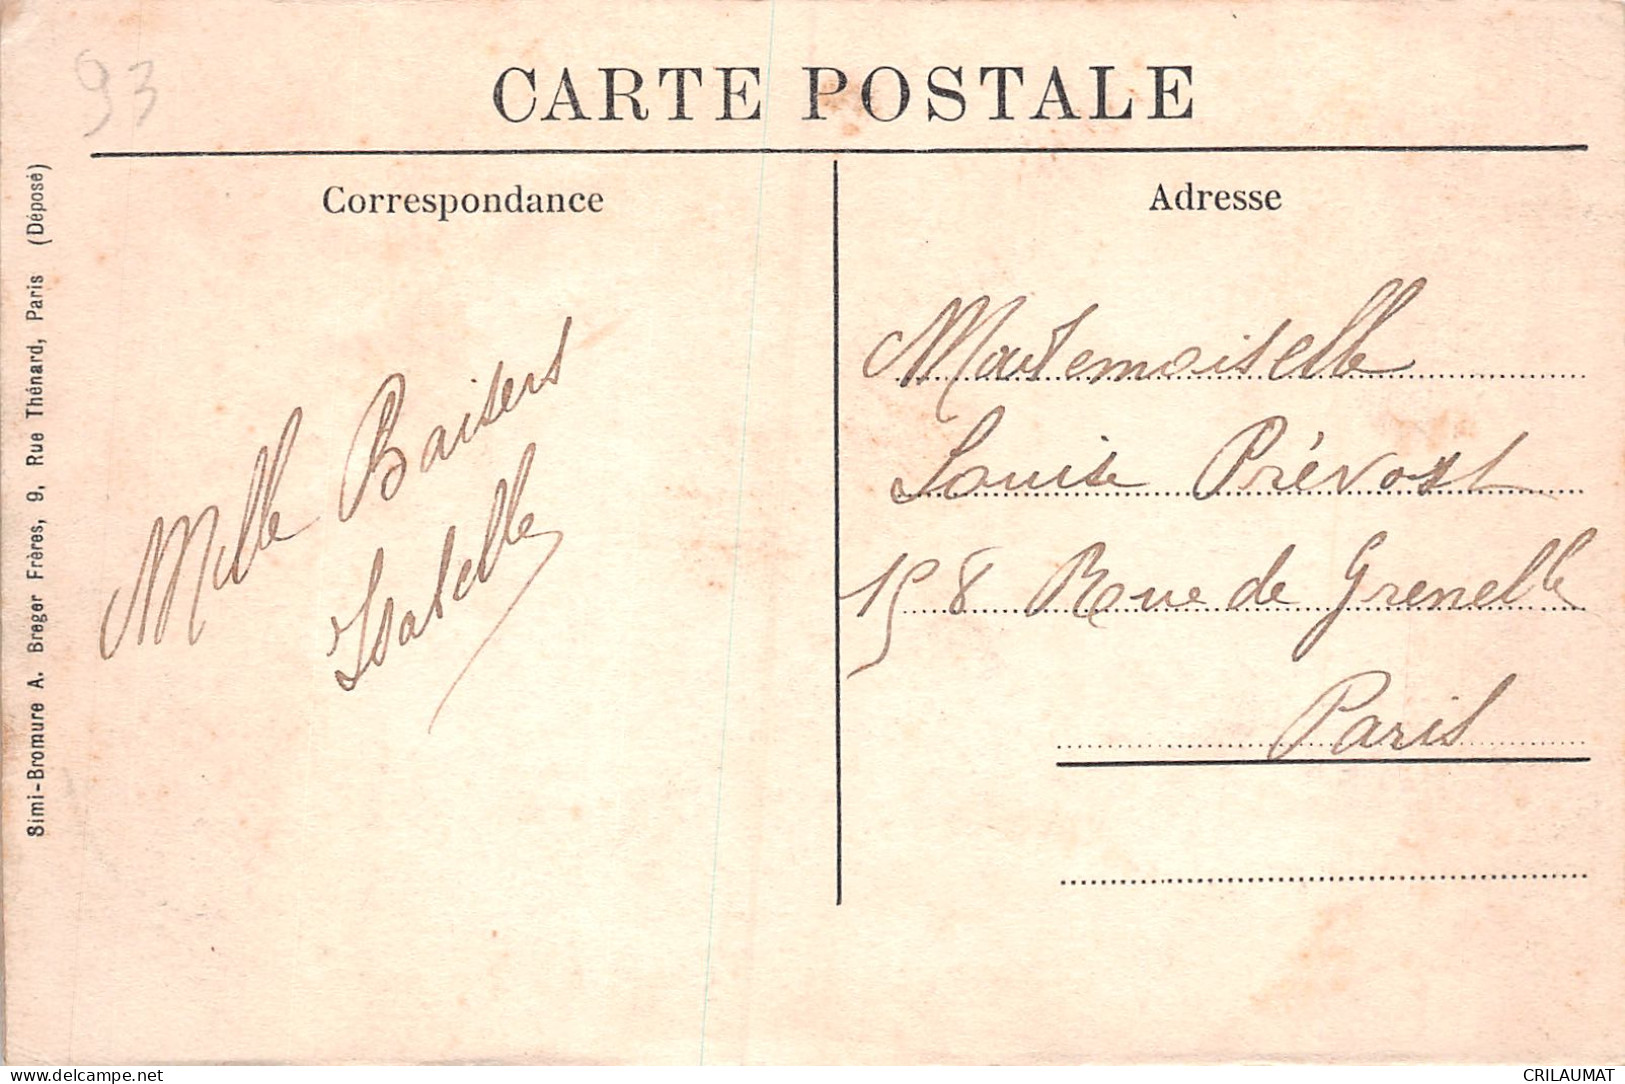 93
CARTE POSTALE
Correspondance
Adresse
Simi-Bromure A. Breger Frères, 9, Rue Thénard, Paris (Déposé)
Mille Baisers
Isabelle
Mademoiselle
Louise Prévost
158 Rue de Grenelle
Paris
delcampe.net
CRILAUMAT